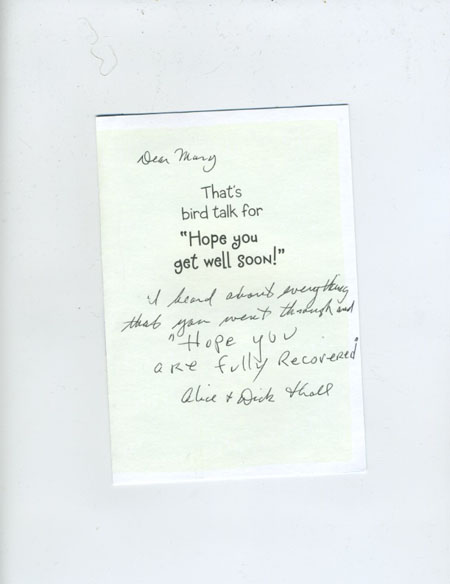 Dear Mary
That's
bird talk for
"Hope you
get well soon!"
I heard about everything
that you went through and
"Hope you
are fully Recovered"
Alice + Dick Khall